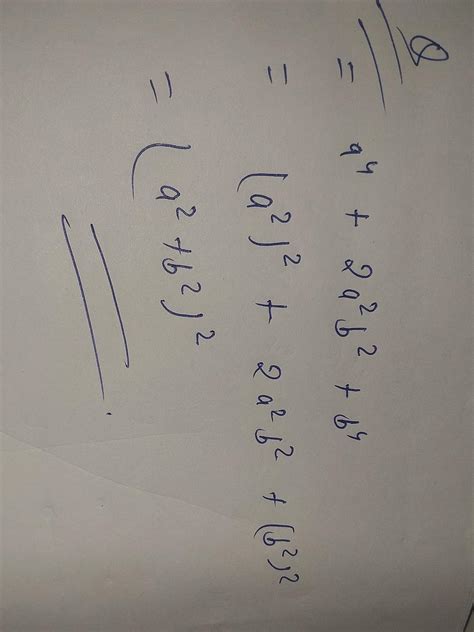 Q
= a⁴ + 2a²b² + b⁴
= (a²)² + 2a²b² + (b²)²
= (a² + b²)²